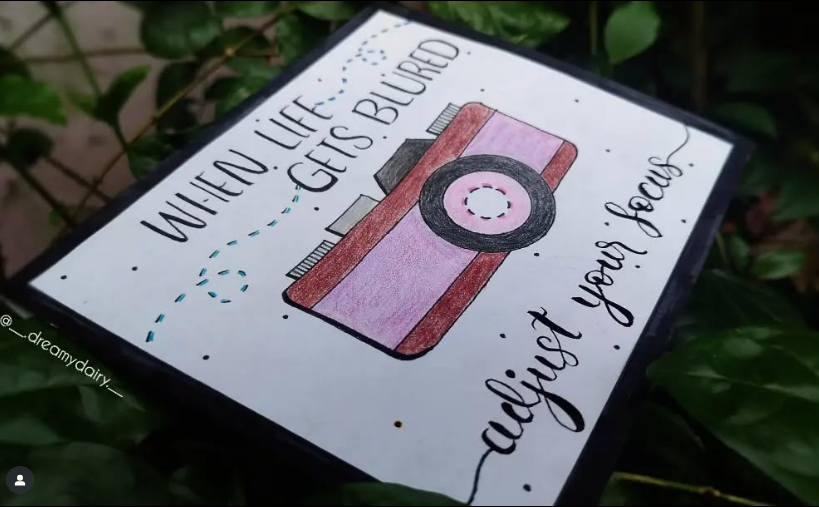 WHEN LIFE
GETS BLURED
adjust your focus
@__.dreamydairy.__